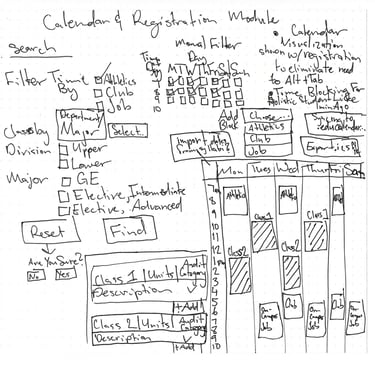 Calendar & Registration Module
Search
Filter Time By
Athletics
Club
Job
Manual Filter
Time
Day
M T W Th F Sa Su
7
8
9
10
Calendar
Visualization
shown w/registration
to eliminate need
to Alt+Tab
Time Blocking For
Holistic Student Life
in App
Class by
Department
Major
Select..
Division
Upper
Lower
Major
GE
Elective, Intermediate
Elective, Advanced
Add
Block
Choose...
Athletics
Club
Job
Import data
Reset
Find
Are You Sure?
No
Yes
Class 1
Units
Audit
Category
Description
+Add
Class 2
Units
Audit
Category
Description
+Add
Mon
Tues
Wed
Thur
Fri
Sat
7am
8
9
10
11
12
1pm
2
3
4
5
6
7
8
9
10
Class 1
Class 1
Class 2
Class 2
Club
Club
On-
Campus
Job
On-
Campus
Job